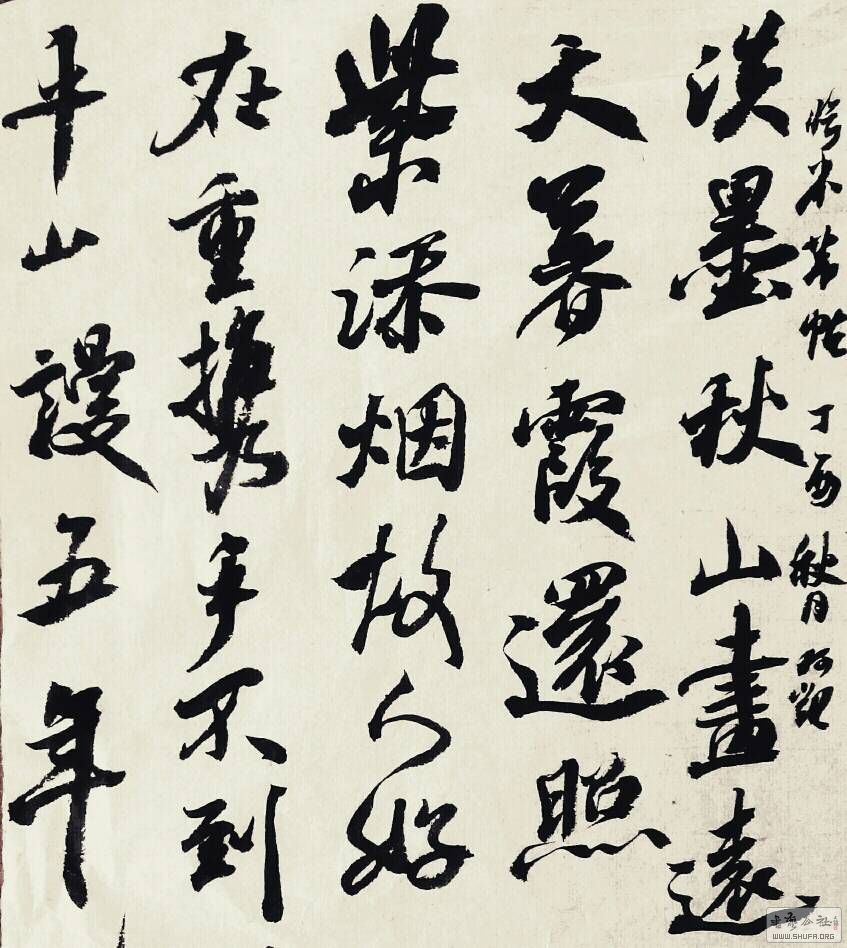 臨米芾帖 丁酉秋月
淡墨秋山畫遠
天暮霞還照
紫添烟故人好
在重携手不到
平山謾五年
WWW.SHUFA.ORG